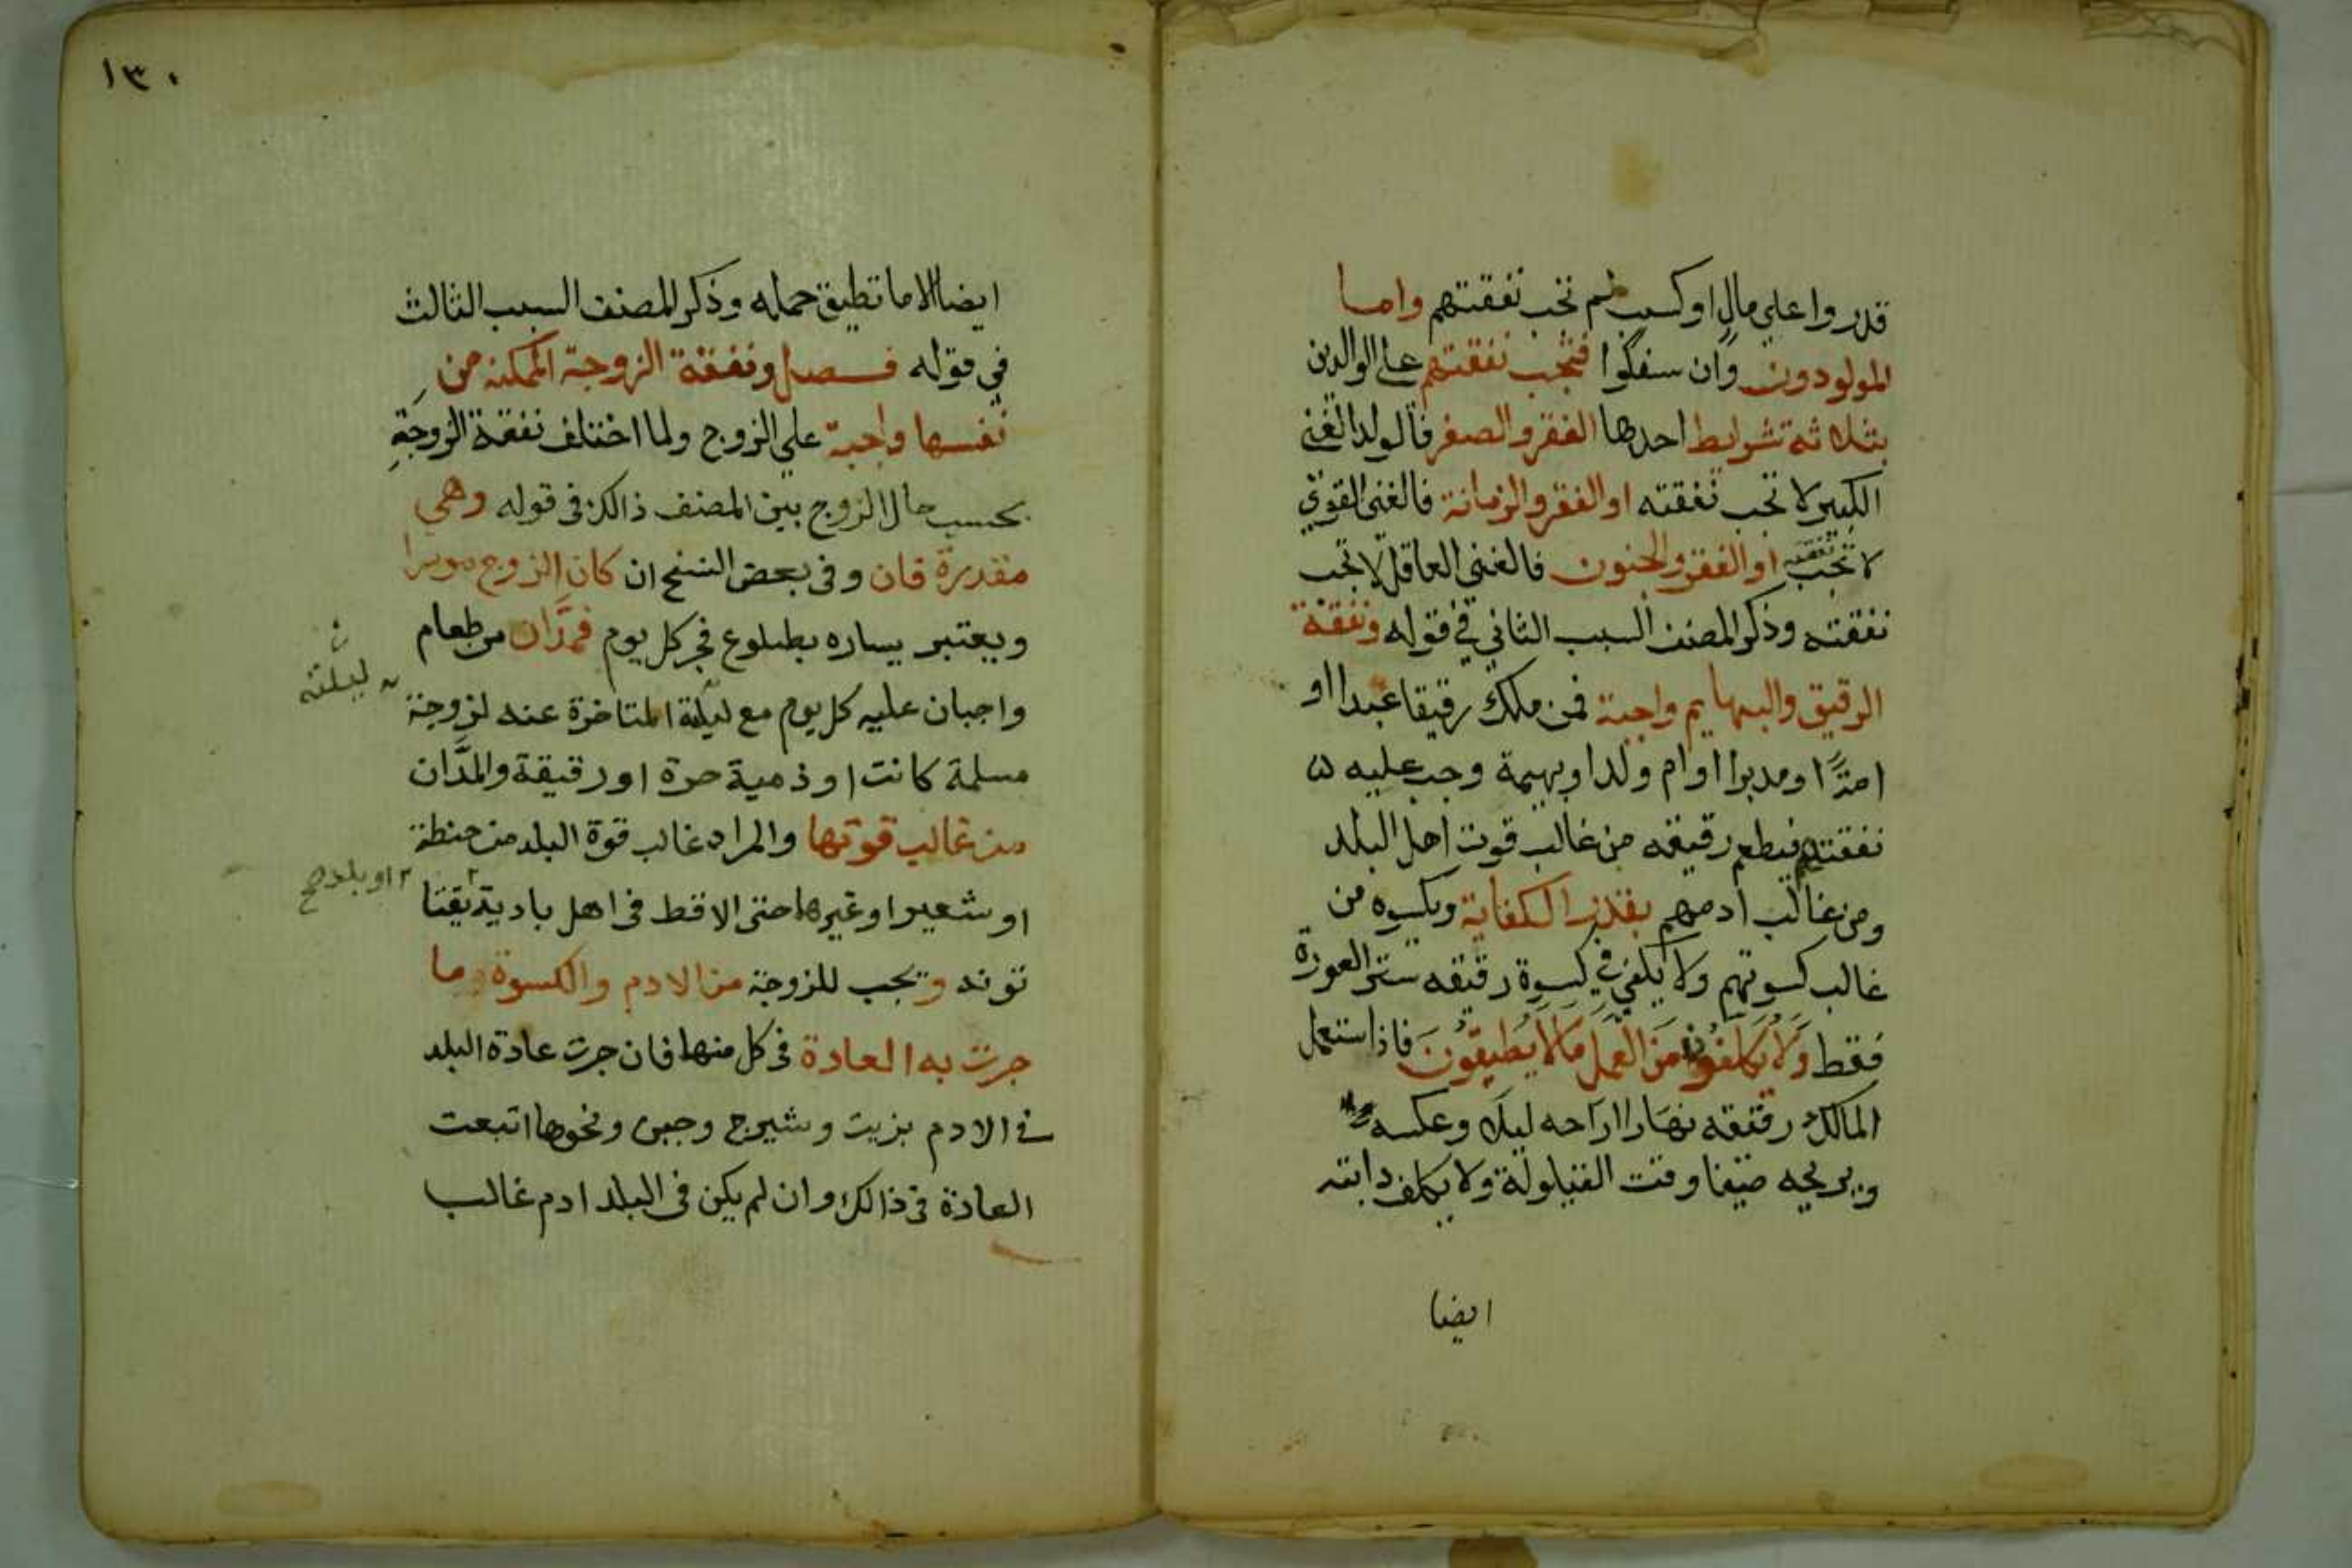 قدروا علي مال او كسب لم تجب نفقتهم واما
المولودون وان سفلوا فتجب نفقتهم على الوالدين
بثلاثة شرايط احدها الفقر والصغر فالولد الغني
الكبير لا تجب نفقته او الفقر والزمانة فالغني القوي
لا تجب نفقته او الفقر والجنون فالغني العاقل لا تجب
نفقته وذكر المصنف السبب الثاني في قوله ونفقة
الرقيق والبهايم واجبة فمن ملك رقيقا عبدا او
امة او مدبرا او ام ولد او بهيمة وجب عليه
نفقتهم فيطعم رقيقه من غالب قوت اهل البلد
ومن غالب ادمهم بقدر الكفاية ويكسوه من
غالب كسوتهم ولا يكفي في كسوة رقيقه ستر العورة
فقط وَلَا يكلفون مِنَ العمل مَالَا يُطيقُونَ فاذا استعمل
المالك رقيقه نهارا اراحه ليلا وعكسه
ويريحه صيفا وقت القيلولة ولا يكلف دابته
ايضا
١٣٠
ايضا الا ما تطيق حمله وذكر المصنف السبب الثالث
في قوله فصل ونفقة الزوجة الممكنة من
نفسها واجبة علي الزوج ولما اختلف نفقة الزوجة
بحسب حال الزوج بين المصنف ذالك في قوله وهي
مقدرة فان وفي بعض النسخ ان كان الزوج موسرا
ويعتبر يساره بطلوع فجر كل يوم فمدَّان من طعام
واجبان عليه كل يوم مع ليلة المتاخرة عنه لزوجة
ليلته
مسلمة كانت او ذمية حرة او رقيقة والمدَّان
من غالب قوتها والمراد غالب قوة البلد من حنطة
او شعير او غيرها حتى الاقط في اهل بادية يقتا
او بلد صح
تونه ويجب للزوجة من الادم والكسوة ما
جرت به العادة في كل منهما فان جرت عادة البلد
في الادم بزيت وشيرج وجبن ونحوها اتبعت
العادة في ذالك وان لم يكن في البلد ادم غالب